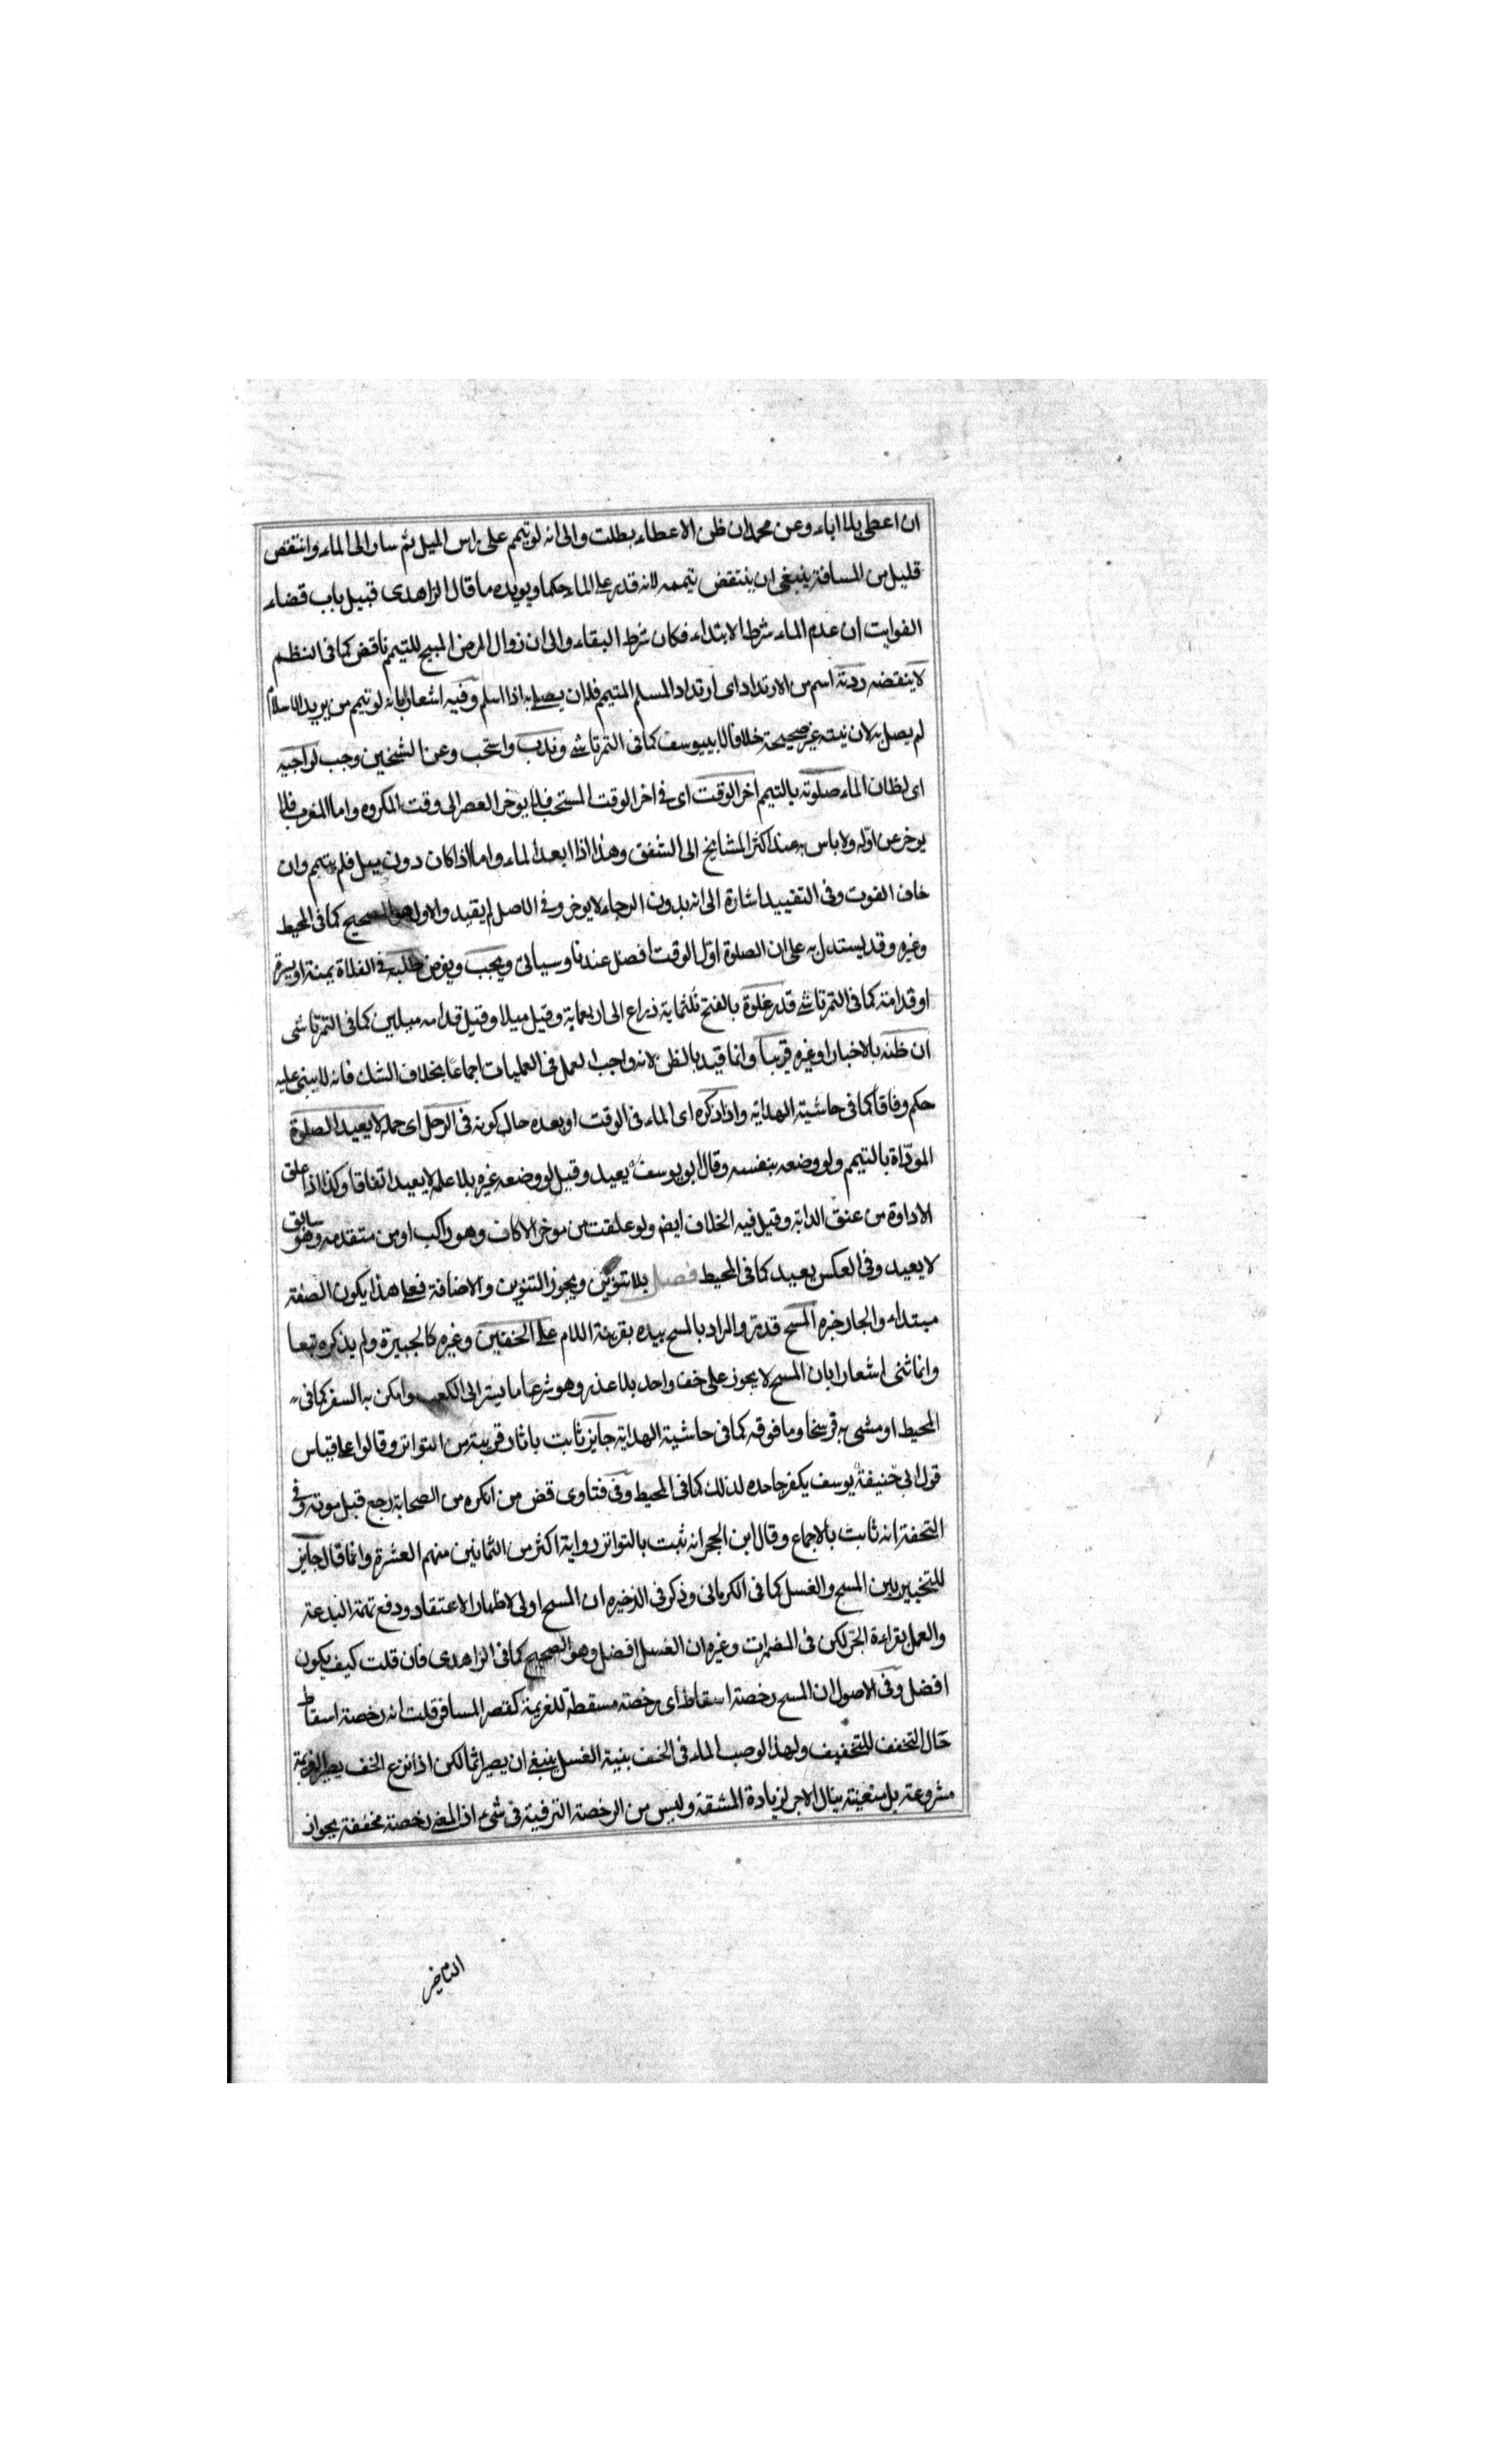 ان اعطى بلا اباء وعن محمد ان ظن الاعطاء بطلت والى انه لو تيمم على راس الميل ثم سار الى الماء وانتقص
قليل من المسافة ينبغى ان ينتقض تيممه لانه قدر على الماء حكما ويويده ما قال الزاهدى قبيل باب قضاء
الفوايت ان عدم الماء شرط الابتداء فكان شرط البقاء والى ان زوال المرض المبيح للتيمم ناقض كما فى النظم
لا ينقضه ردته اسم من الارتداد اى ارتداد المسلم المتيمم فلان يصلى به اذا اسلم وفيه اشعار بانه لو تيمم من يريد الاسلام
لم يصل به لان نيته غير صحيحة خلافا لابييوسف كما فى التمرتاشى وندب واستحب وعن الشيخين وجب لراجيه
اى لظان الماء صلوته بالتيمم اخر الوقت اى فى اخر الوقت المستحب فلا يوخر العصر الى وقت المكروه واما المغرب فلا
يوخر عن اوله ولا باس به عند اكثر المشايخ الى الشفق وهذا اذا ابعد الماء واما اذا كان دون ميل فلم يتيمم وان
خاف الفوت وفى التقييد اشارة الى انه بدون الرجاء لا يوخر وفى الاصل لم يقيد والاول هو الصحيح كما فى المحيط
وغيره وقد يستدل به على ان الصلوة اول الوقت افضل عندنا وسياتى ويجب ويفرض طلبه فى الفلاة يمنة او يسرة
او قدامه كما فى التمرتاشى قدر غلوة بالفتح ثلثماية ذراع الى اربعماية وقيل ميلا وقيل قدامه ميلين كما فى التمرتاشى
ان ظنه بالاخبار او غيره قريبا وانما قيد بالظن لانه واجب العمل فى العمليات اجماعا بخلاف الشك فانه لا يبنى عليه
حكم وفاقا كما فى حاشية الهداية واذا ذكره اى الماء فى الوقت او بعده حال كونه فى الرحل اى حمله لا يعيد الصلوة
المودّاة بالتيمم ولو وضعه بنفسه وقال ابو يوسف يعيد وقيل لو وضعه غيره بلا علمه لا يعيد اتفاقا وكذا اذا علق
الاداوة من عنق الدابة وقيل فيه الخلاف ايض ولو علقت من موخر الاكاف وهو راكب او من متقدمه وهو سابق
لا يعيد وفى العكس يعيد كما فى المحيط فصل بلا تنوين ويجوز التنوين والاضافة فعلى هذا يكون الصفة
مبتداء والجار خبره المسح قدمه والمراد بالمسح بيده بقرينة اللام على الخفين وغيره كالجبيرة ولم يذكره تبعا
وانما ثنى اشعارا بان المسح لا يجوز على خف واحد بلا عذر وهو شرعا ما يستر الى الكعب وامكن به السفر كما فى
المحيط او مشى به فرسخا وما فوقه كما فى حاشية الهداية جايز ثابت باثار قريبة من التواتر وقالوا على قياس
قول ابى حنيفة يوسف يكفر جاحده لذلك كما فى المحيط وفى فتاوى قض من انكره من الصحابة رجع قبل موته وفى
التحفة انه ثابت بالاجماع وقال ابن الحجر انه ثبت بالتواتر رواية اكثر من الثمانين منهم العشرة وانما قال جايز
للتخيير بين المسح والغسل كما فى الكرمانى وذكر فى الذخيره ان المسح اولى لاظهار الاعتقاد ودفع تهمة البدعة
والعمل بقراءة الجر لكن فى المضمرات وغيره ان الغسل افضل وهو الصحيح كما فى الزاهدى فان قلت كيف يكون
افضل وفى الاصول ان المسح رخصة اسقاط اى رخصة مسقطة للعزيمة كقصر المسافر قلت انه رخصة اسقاط
حال التخفف للتخفيف ولهذا لو صب الماء فى الخف بنية الغسل ينبغى ان يصير اثما لكن اذا نزع الخف يصير العزيمة
مشروعة بل متعينة ينال الاجر لزيادة المشقة وليس من الرخصة الترفية فى شىء اذ المعنى رخصة مخففة بجواز